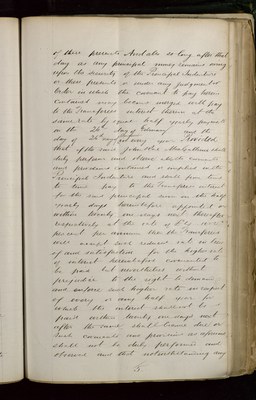 of these presents And also so long after that
day as any principal money remains owing
upon the security of the Principal Indenture
or these presents or under any judgment or
order in which the covenant to pay herein
contained may become merged will pay
to the Transferees interest thereon at the
same rate by equal half yearly payments
on the 26th day of February and the
day of 26th August in every year Provided
that if the said John
duly perform and observe all the covenants
and provisions contained or implied in the
Principal Indenture and shall from time
to time pay to the Transferees interest
for the said principal sum on the half
yearly days hereinbefore appointed or
within twenty one days next thereafter
respectively at the rate of
percent per annum then the Transferees
will accept such reduced rate in lieu
of and satisfaction for the higher rate
of interest hereinbefore covenanted to
be paid but nevertheless without
prejudice to the right to demand
and enforce such higher rate in respect
of every or any half year for
which the interest shall not be
paid within twenty one days next
after the same shall become due or
such covenants and provisions as aforesaid
shall not be duly performed and
observed and that notwithstanding any